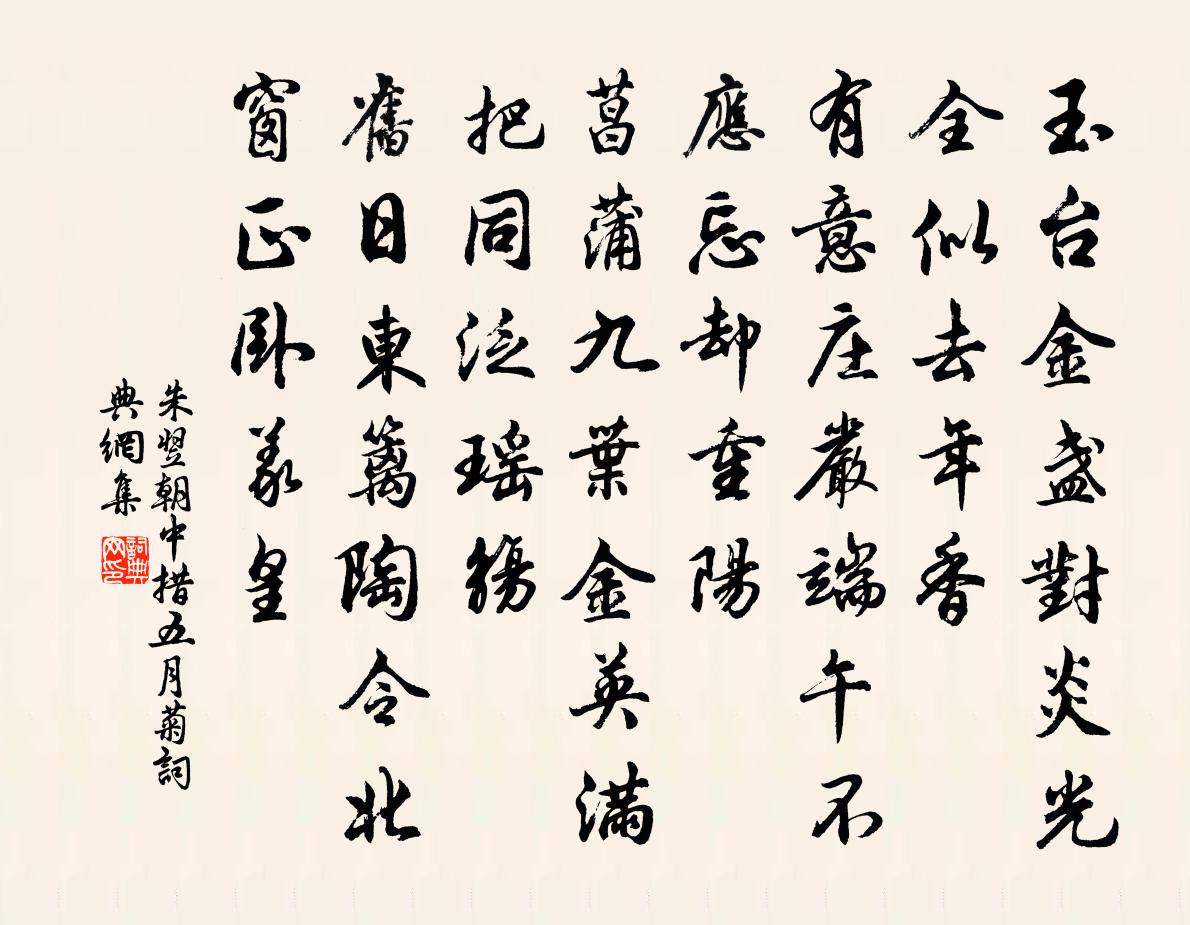 玉台金盏對炎光
全似去年香
有意庄嚴端午不
應忘却重陽
菖蒲九葉金英滿
把同泛瑶觴
舊日東篱陶令北
窗正卧羲皇
朱翌朝中措五月菊詞
典網集
詞典網印